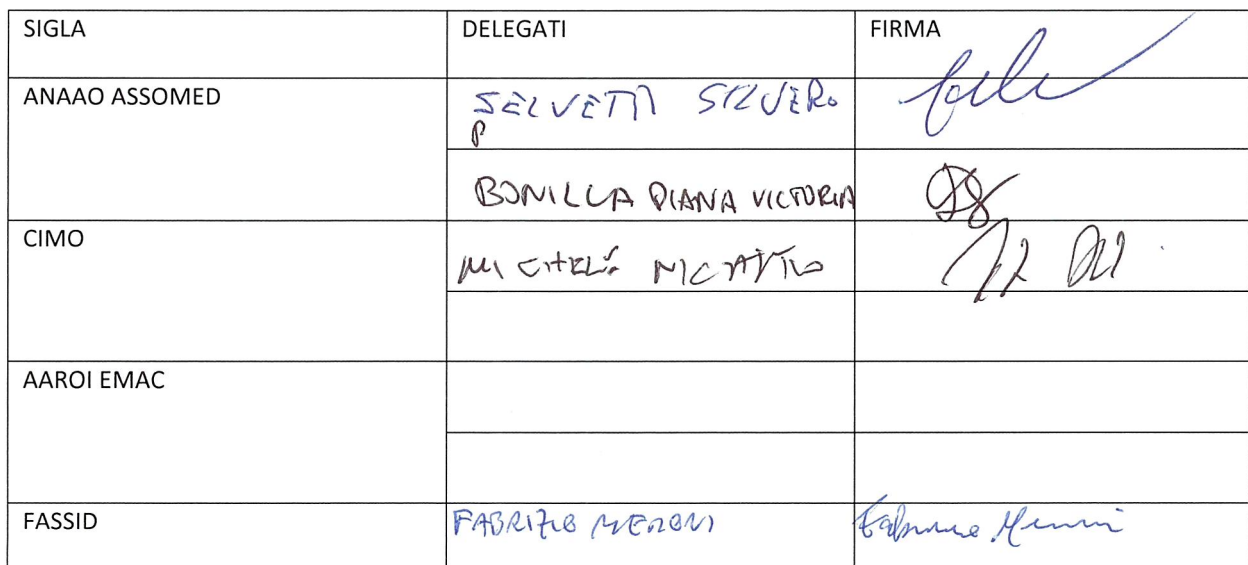 SIGLA DELEGATI FIRMA
ANAAO ASSOMED SELVETTI SILVERO
BONILLA DIANA VICTORIA
CIMO MICHELE
AAROI EMAC
FASSID FABRIZIO MERONI